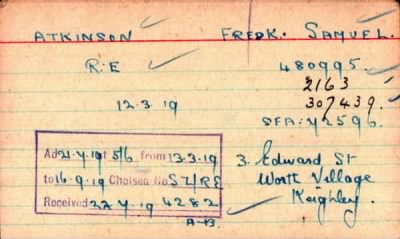 ATKINSON FREDK. SAMUEL.
R.E 480995.
2163
12.3.19 307439.
SFA: Y2596.
Ad 21.7.19 at 5/6 from 13.3.19
to 16.9.19 Chelsea No S7/RE
Received 22.7.19 4282
A-B.
3. Edward St
Worth Village
Keighley.